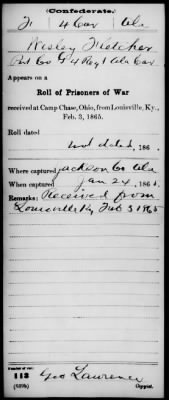 (Confederate.)
F 4 Cav Ala
Wesley Fletcher
Pvt Co G 4 Regt Ala Cav
Appears on a
Roll of Prisoners of War
received at Camp Chase, Ohio, from Louisville, Ky.,
Feb. 3, 1865.
Roll dated
not dated, 186 .
Where captured Jackson Co Ala
When captured Jan 24, 186 .
Remarks: Received from
Louisville Ky Feb 3 1865
Number of roll:
113
(639b)
Geo Lawrence
Copyist.